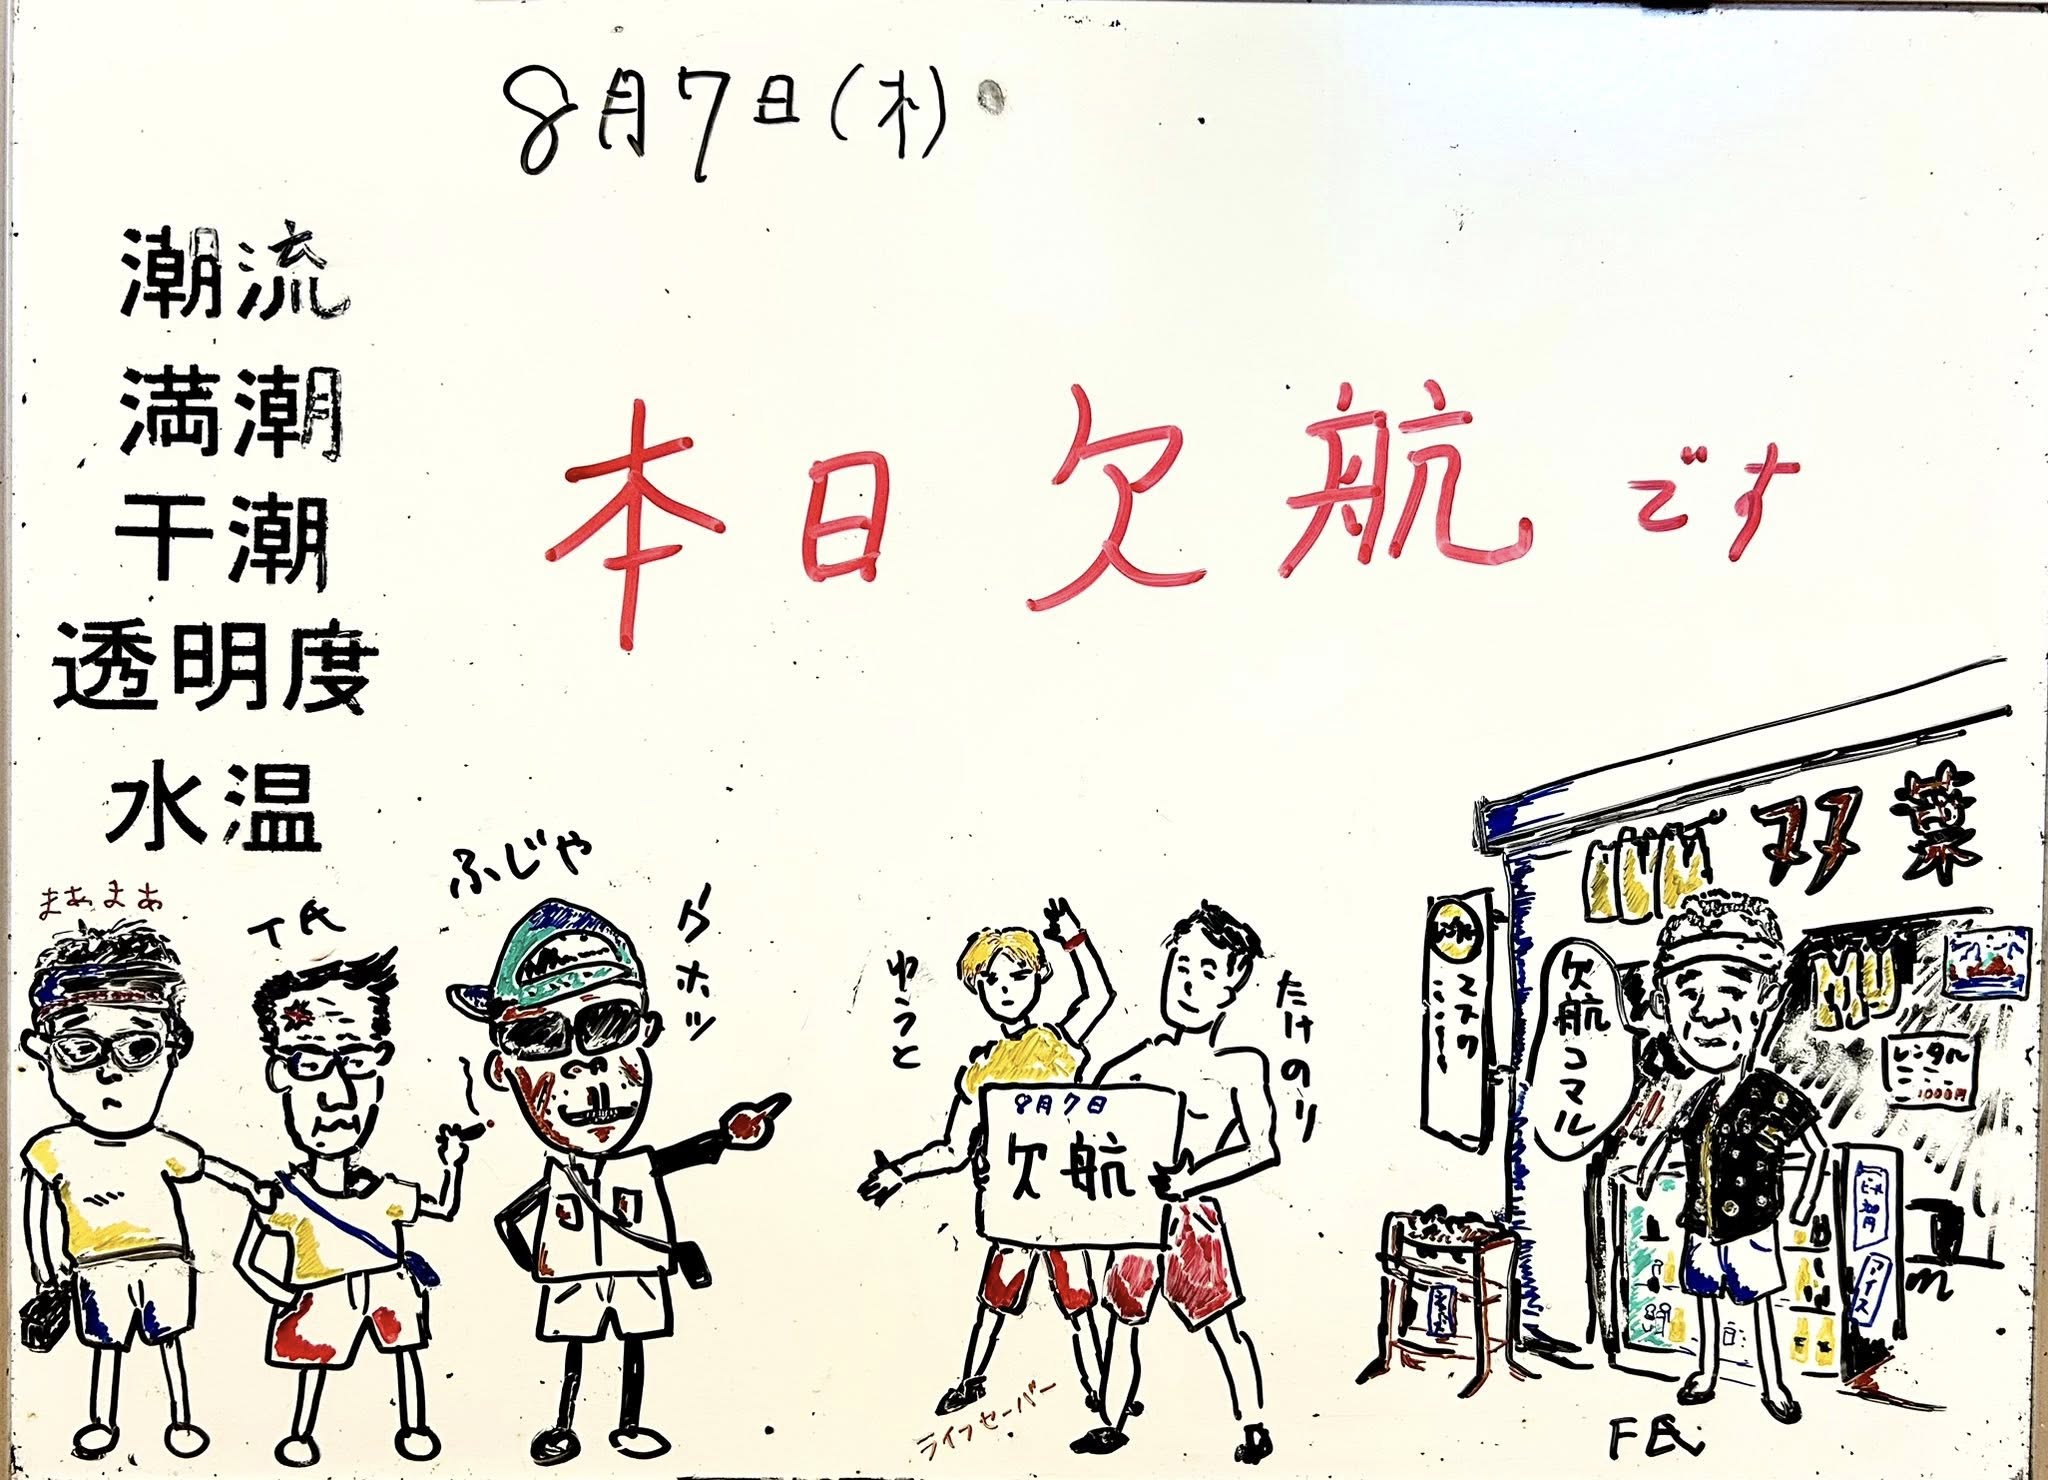 8月7日(木)
潮流
満潮
干潮
透明度
水温
本日 欠航です
まあまあ
T氏
ふじや
ウホッ
ゆうと
たけのり
8月7日
欠航
ライフセーバー
双葉
欠航コマル
レンタル
1000円
アイス
F氏